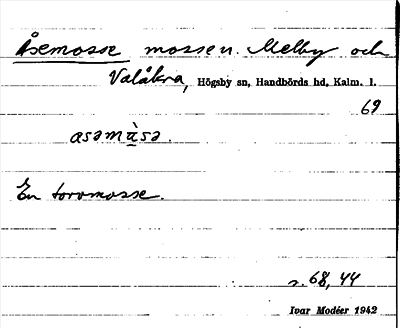 Åsemosse mossen. Melby och
Valåkra, Högsby sn, Handbörds hd, Kalm. l.
69
asəmὰsə.
En torvmosse.
s. 68, 44
Ivar Modéer 1942